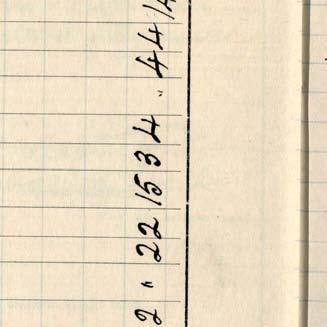 2 " 221534 " 441